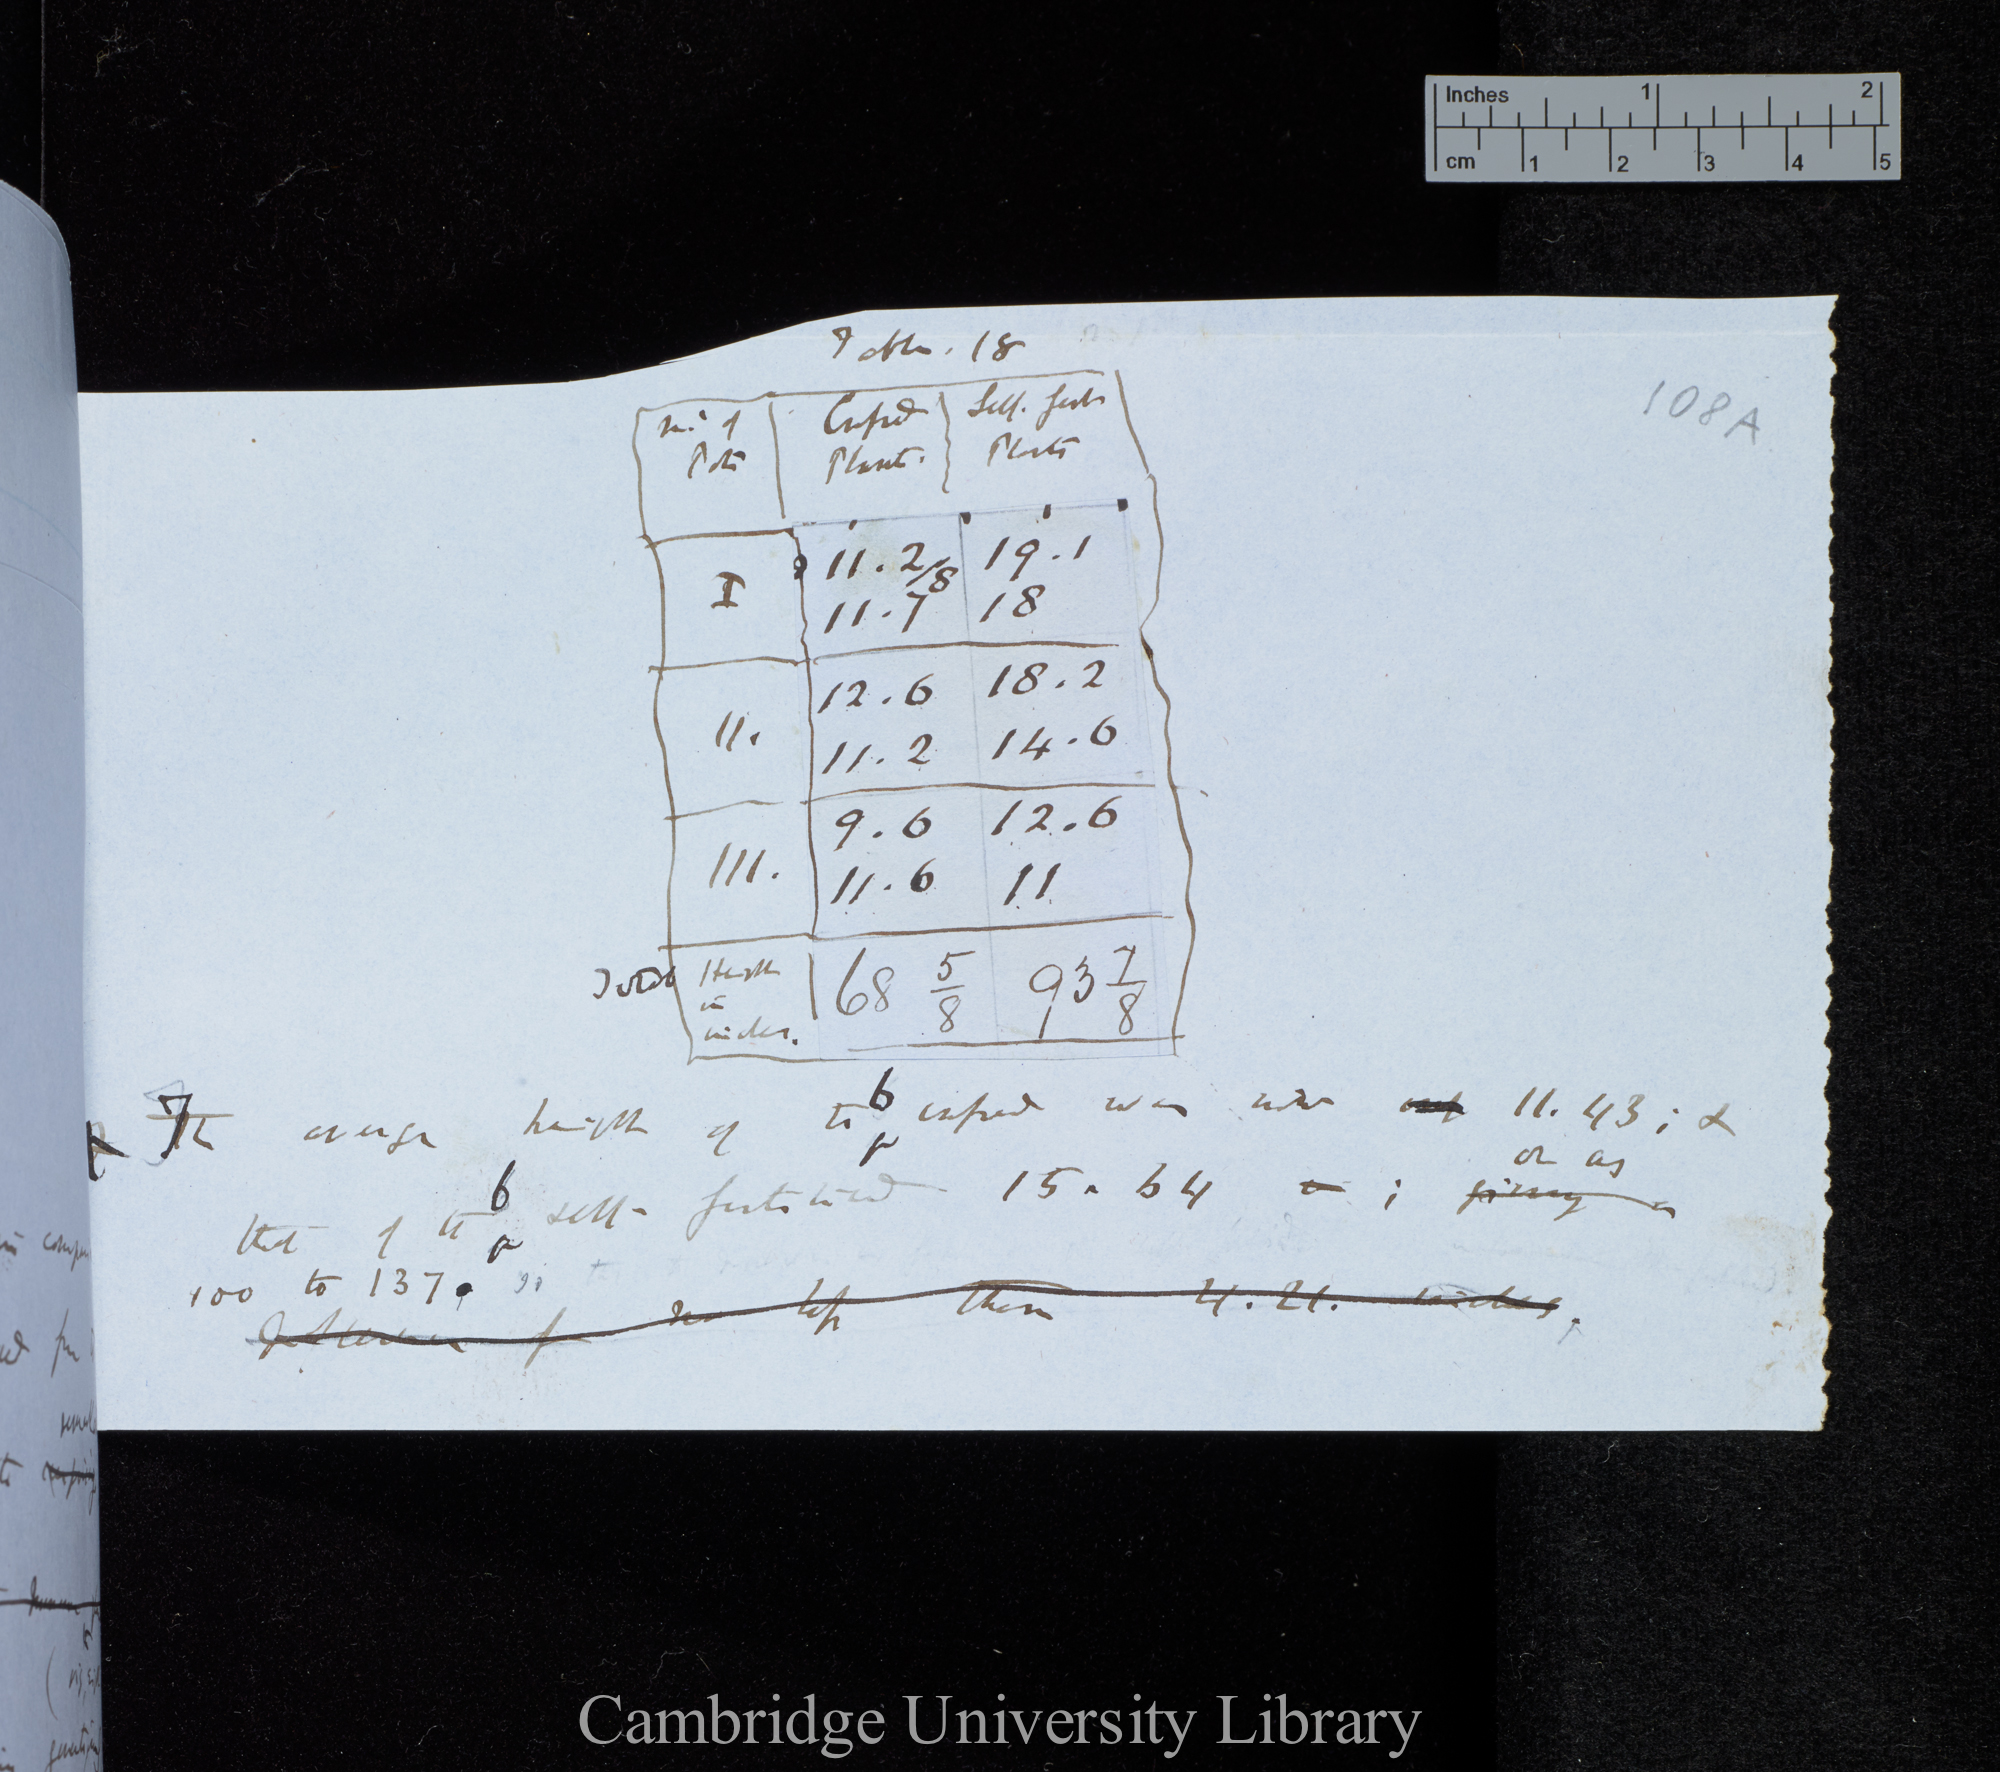 Inches 1 2
cm 1 2 3 4 5
Table. 18
108A
No. of Pots
Crossed Plants.
Self. fert. Plants
I
11.2/8 19.1
11.7 18
II.
12.6 18.2
11.2 14.6
III.
9.6 12.6
11.6 11
Total Height in inches.
68 5/8 93 7/8
The average height of the 6 crossed was now 11.43; &
or as
that of the 6 self-fertilised 15.64 ; giving
100 to 137.
Difference of no less than 4.21. inches.
Cambridge University Library